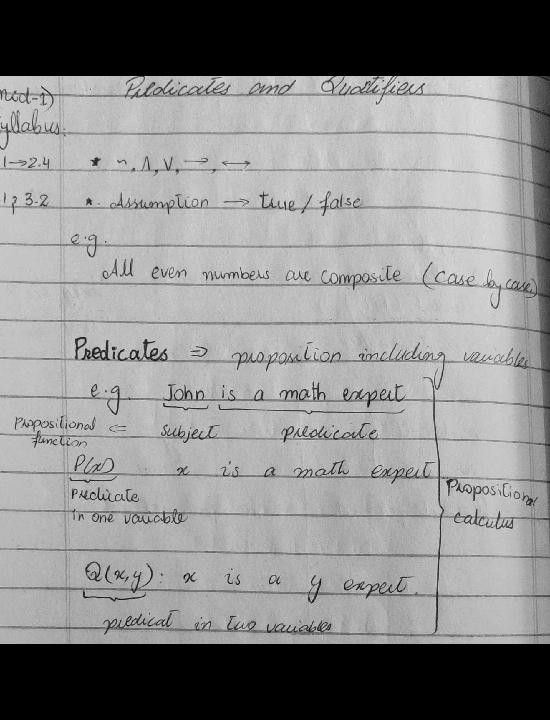 Predicates and Quatifiers
mid-1)
yllabus:
1→2.4 * ~, Λ, V, →, ↔
1, 3.2 * Assumption → true / false
e.g.
All even numbers are composite (case by case)
Predicates ⇒ proposition including variables
e.g. John is a math expert
Propositional function ⇐ subject predicate
P(x) x is a math expert
predicate
in one variable
Propositional
calculus
Q(x,y): x is a y expert.
predicat in two variables